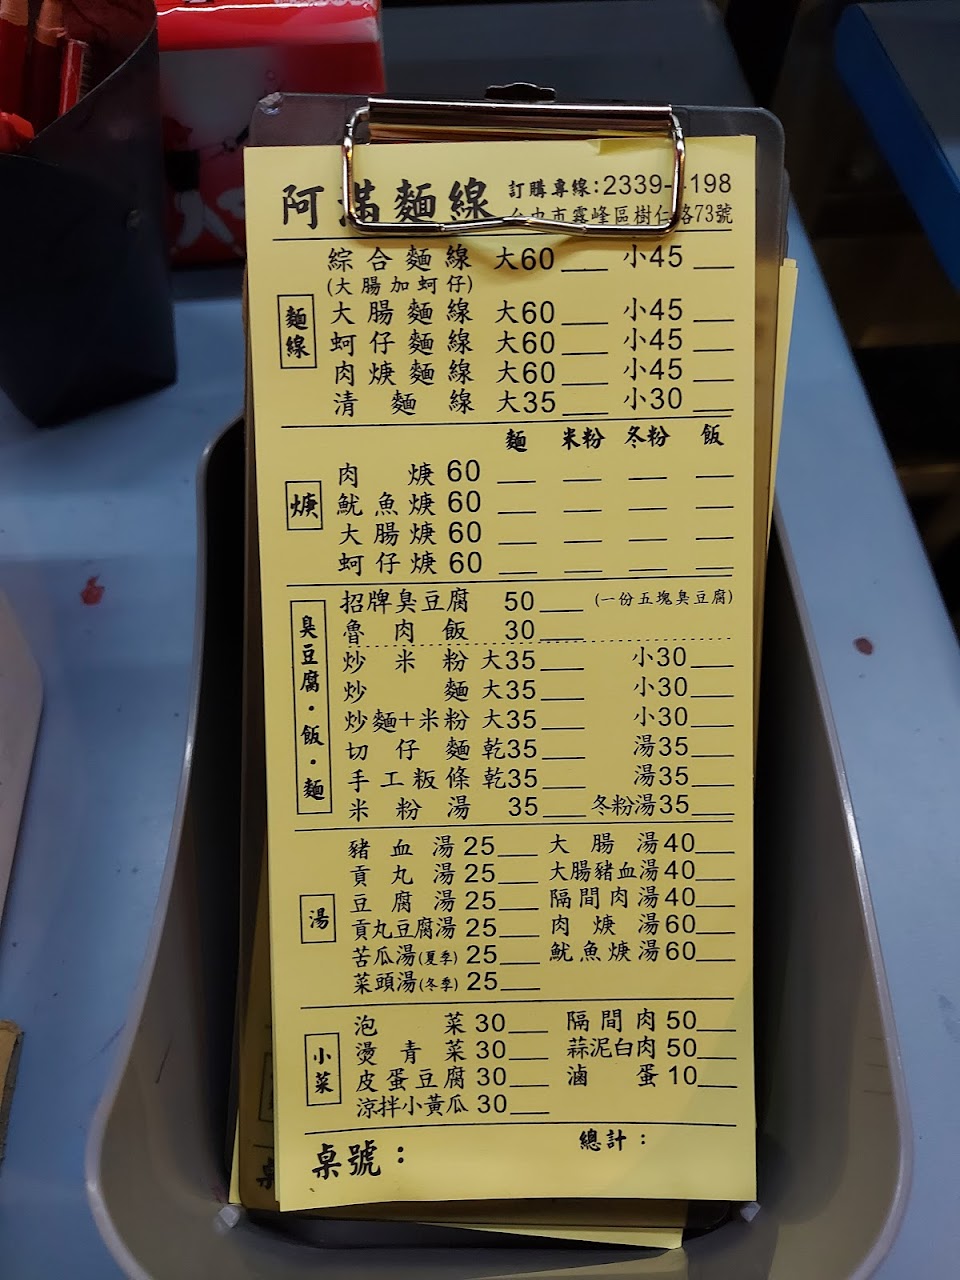 阿滿麵線 訂購專線:2339-198
台中市霧峰區樹仁路73號
綜合麵線 大60___ 小45___
(大腸加蚵仔)
麵線
大腸麵線 大60___ 小45___
蚵仔麵線 大60___ 小45___
肉焿麵線 大60___ 小45___
清麵線 大35___ 小30___
麵 米粉 冬粉 飯
焿
肉焿 60 ___ ___ ___ ___
魷魚焿 60 ___ ___ ___ ___
大腸焿 60 ___ ___ ___ ___
蚵仔焿 60 ___ ___ ___ ___
臭豆腐・飯・麵
招牌臭豆腐 50___ (一份五塊臭豆腐)
魯肉飯 30___
炒米粉 大35___ 小30___
炒麵 大35___ 小30___
炒麵+米粉 大35___ 小30___
切仔麵 乾35___ 湯35___
手工粄條 乾35___ 湯35___
米粉湯 35___ 冬粉湯35___
湯
豬血湯 25___ 大腸湯 40___
貢丸湯 25___ 大腸豬血湯 40___
豆腐湯 25___ 隔間肉湯 40___
貢丸豆腐湯 25___ 肉焿湯 60___
苦瓜湯(夏季) 25___ 魷魚焿湯 60___
菜頭湯(冬季) 25___
小菜
泡菜 30___ 隔間肉 50___
燙青菜 30___ 蒜泥白肉 50___
皮蛋豆腐 30___ 滷蛋 10___
涼拌小黃瓜 30___
桌號： 總計：